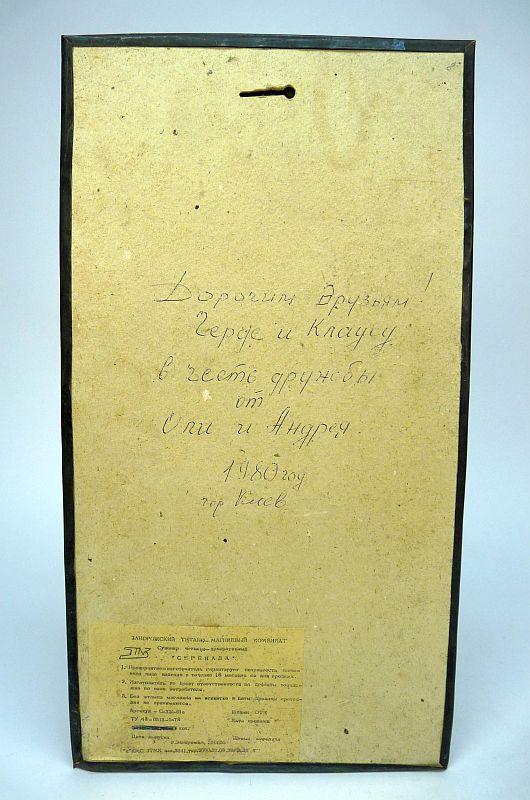 Дорогим друзьям!
Герде и Клаусу
в честь дружбы
от
Оли и Андрея.
1980 год
гор Киев
ЗАПОРОЖСКИЙ ТИТАНО-МАГНИЕВЫЙ КОМБИНАТ
Сувенир чеканно-декоративный
"СЕРЕНАДА"
1. Предприятие-изготовитель гарантирует сохранность
вида изделия в течение 18 месяцев со дня продажи.
2. Изготовитель не несет ответственности за дефекты
по вине потребителя.
3. Без штампа магазина на этикетке и даты продажи
не принимаются.
Артикул
Штамп ОТК
ТУ 48-0513-5-78
Дата продажи
Дата выпуска
Штамп магазина
г. Запорожье,